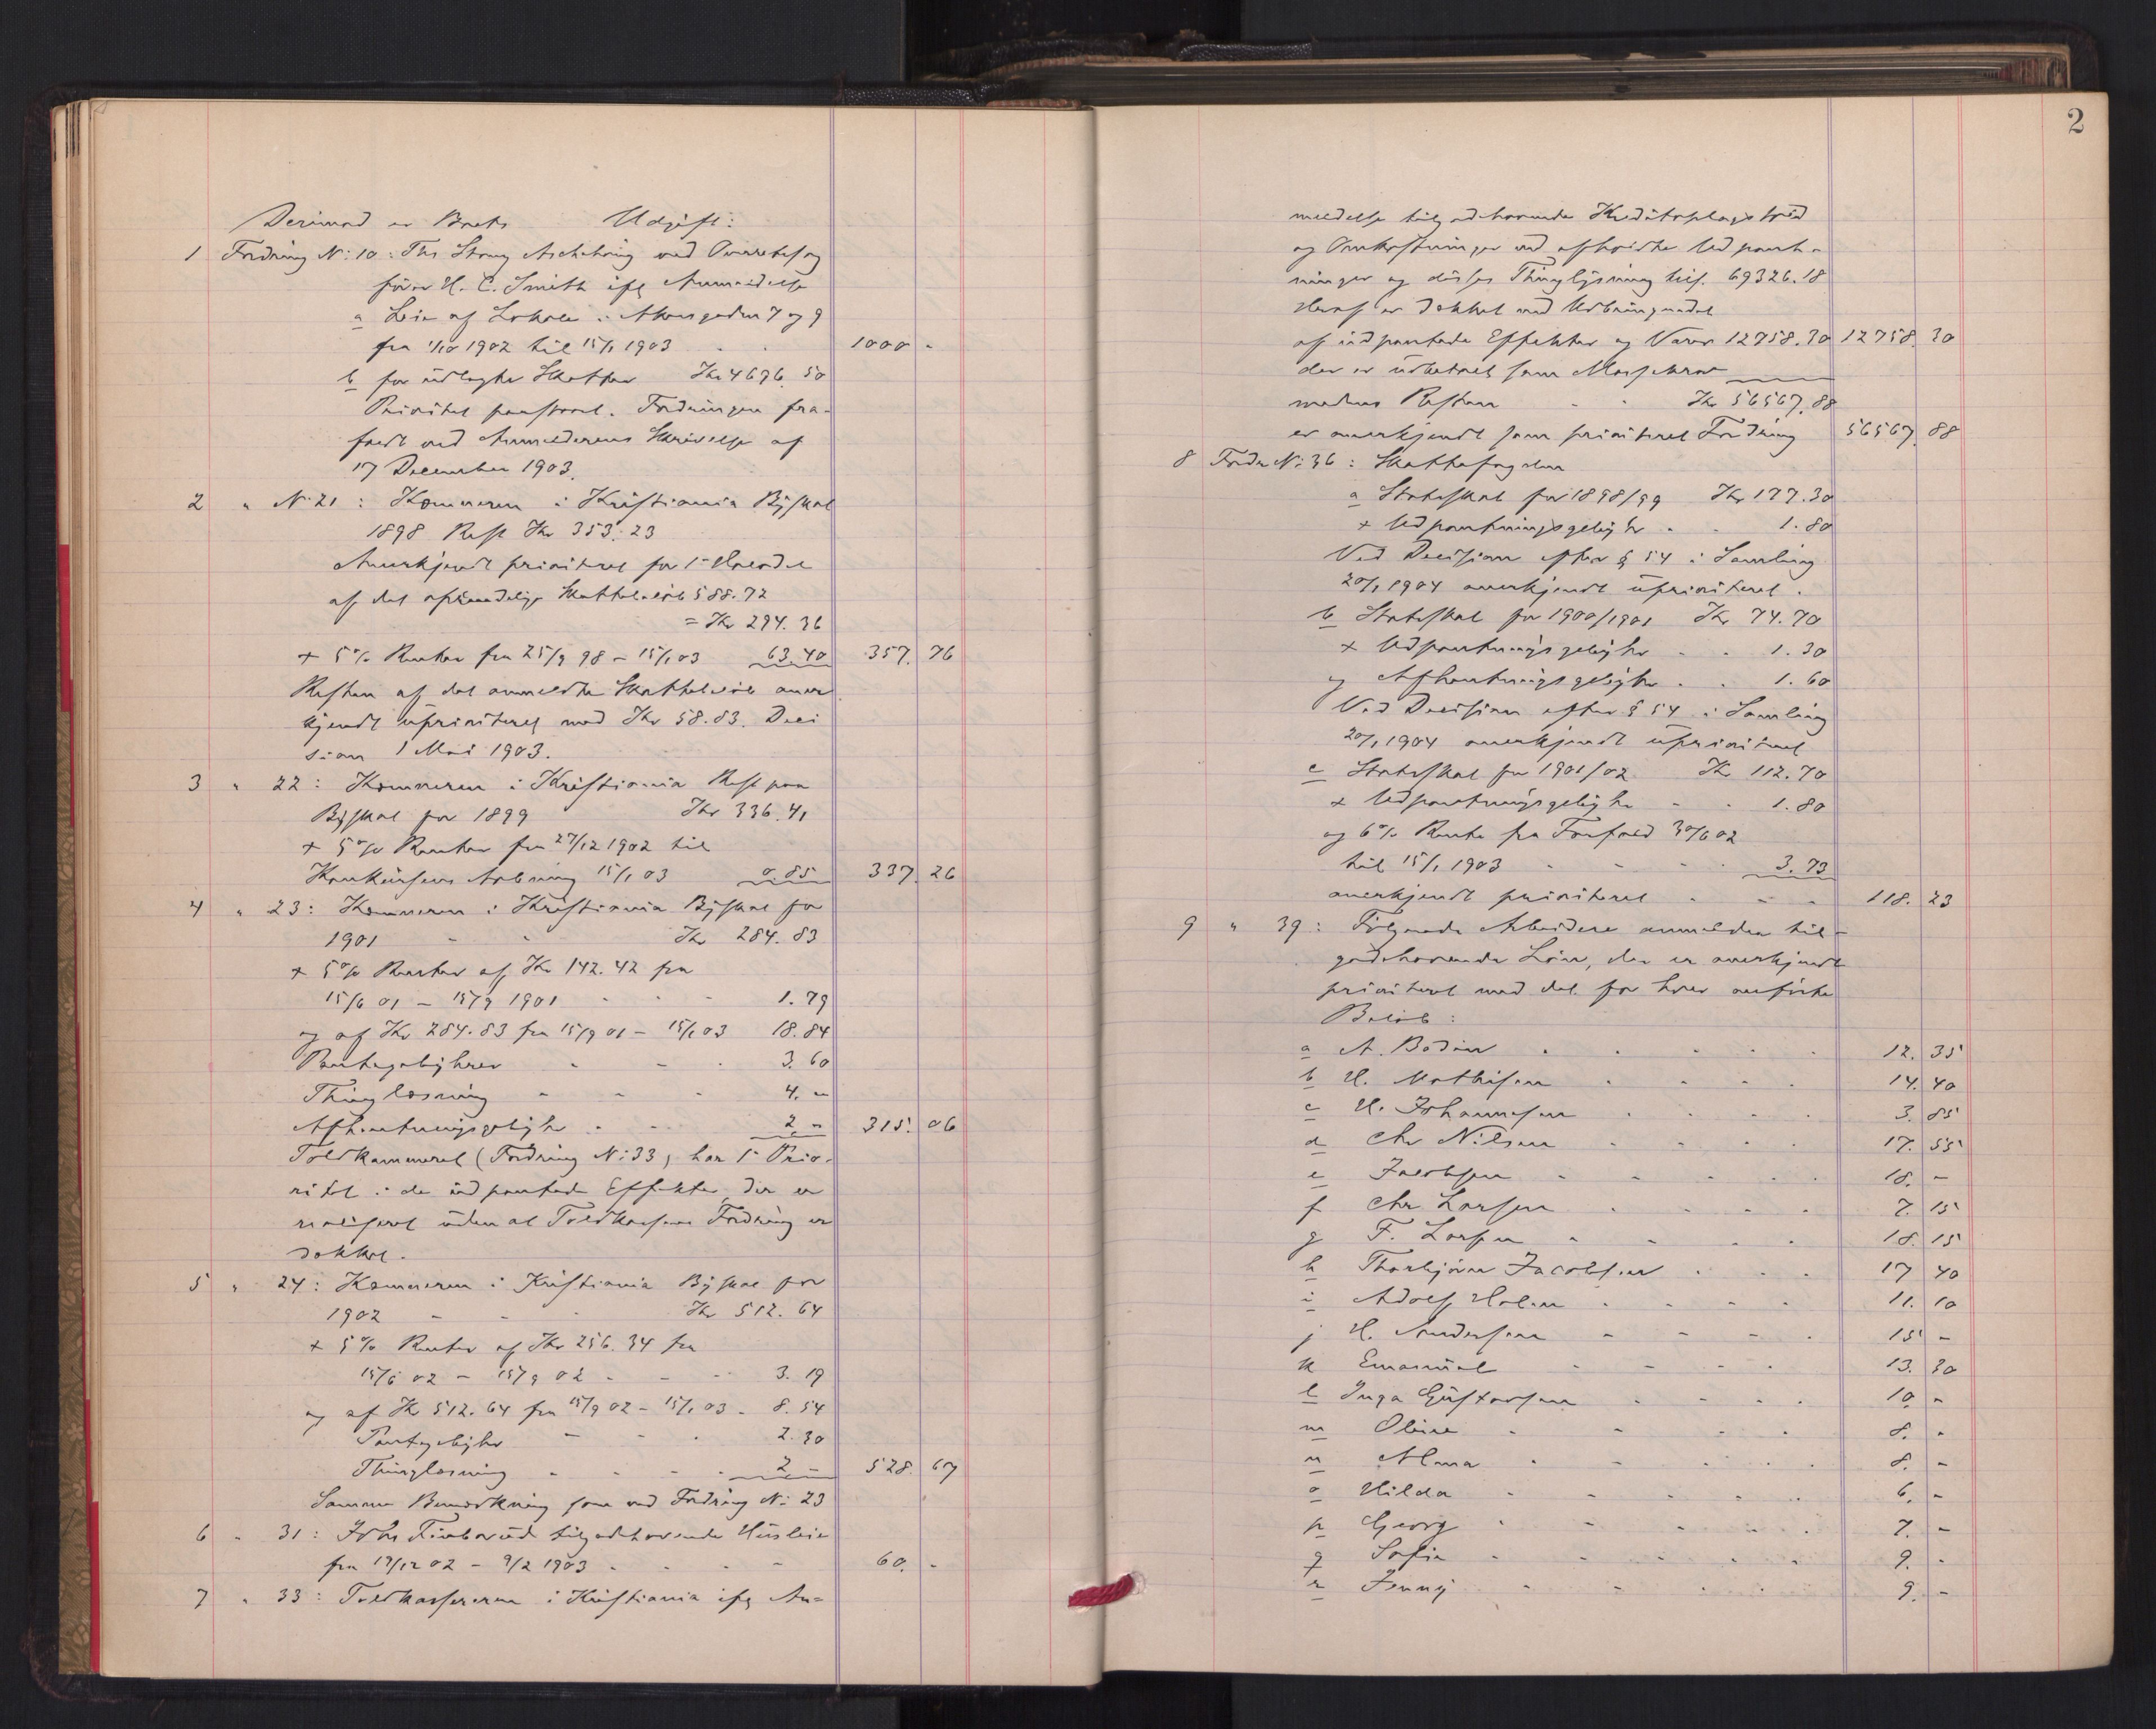 Derimod er Boets Udgift:
1 Fordring No: 10: Ths Stang Architring ved Overretssag
fører H. C. Smith ifg Anmeldelse
a Leie af Lokale i Akersgaden 7 og 9
fra 1/10 1902 til 15/1 1903 1000 -
b for udlagte Skatter Kr 4696.50
Prioritet paastaaet. Fordringen fra-
faldt ved Anmelderens Skrivelse af
17 December 1903.
2 " No 21: Kemneren i Kristiania Byskat
1898 Rest Kr 353.23
Anerkjendt prioriteret for 1ste Halvdel
af det oprindelige Skattebeløb 588.72
= Kr 294.36
+ 5% Renter fra 25/9 98 - 15/1 03 63.40 357.76
Resten af det anmeldte Skattebeløb aner
kjendt uprioriteret med Kr 58.83. Deci
sion 1 Mai 1903.
3 " 22: Kemneren i Kristiania Rest paa
Byskat for 1899 Kr 336.41
+ 5% Renter fra 27/12 1902 til
Konkursens Aabning 15/1 03 0.85 337.26
4 " 23: Kemneren i Kristiania Byskat for
1901 - - Kr 284.83
+ 5% Renter af Kr 142.42 fra
15/6 01 - 15/9 1901 - - - 1.79
og af Kr 284.83 fra 15/9 01 - 15/1 03 18.84
Pantegebyhrer - - - 3.60
Thinglæsning - - - 4. -
Afhentningsgebyhr - - 2. - 315.06
Toldkammeret (Fordring No: 33) har 1ste Prio-
ritet i de udpantede Effekter, der er
realiseret uden at Toldkassens Fordring er
dækket.
5 " 24: Kemneren i Kristiania Byskat for
1902 - - - Kr 512.64
+ 5% Renter af Kr 256.34 fra
15/6 02 - 15/9 02 - - - 3.19
og af Kr 512.64 fra 15/9 02 - 15/1 03 - 8.54
Pantegebyhr - - - 2.30
Thinglæsning - - - - 2 - 528.67
Samme Bemærkning som ved Fordring No: 23
6 " 31: Johs tilgodehavende Husleie
fra 19/12 02 - 9/2 1903 - - - - 60. -
7 " 33: Toldkassereren i Kristiania ifg An-
2
meldelse tilgodehavende Kreditoplagstold
og Omkostninger ved afholdte Udpant-
ninger og disses Thinglysning tils. 69326.18
Heraf er dækket ved Udbringendet
af udpantede Effekter og Varer 12758.30 12758.30
der er udbetalt som Massekrav
medens Resten - - Kr 56567.88
er anerkjendt som prioriteret Fordring 56567.88
8 Fordr No: 36: Skattefogden
a Statsskat for 1898/99 Kr 177.30
+ Udpantningsgebyhr - - 1.80
Ved Decision efter § 54 i Samling
20/1 1904 anerkjendt uprioriteret.
b Statsskat for 1900/1901 Kr 74.70
+ Udpantningsgebyhr - - 1.30
og Afhentningsgebyhr - - 1.60
Ved Decision efter § 54 i Samling
20/1 1904 anerkjendt uprioriteret
c Statsskat for 1901/02 Kr 112.70
+ Udpantningsgebyhr - - 1.80
og 6% Rente fra Forfald 30/6 02
til 15/1 1903 - - - - 3.73
anerkjendt prioriteret - - - 118.23
9 " 39: Følgende Arbeidere anmelder til-
godehavende Løn, der er anerkjendt
prioriteret med det for hver anførte
Beløb:
a A. Bodin 12.35
b H. Mathisen 14.40
c H. Johannesen 3.85
d Chr Nilsen 17.55
e Jacobsen 18. -
f Chr Larsen 7.15
g F. Larsen 18.15
h Thorbjørn Jacobsen 17 40
i Adolf Holm 11.10
j H. Andersen 15 -
k Emanuel 13.30
l Inga Gustavsen 10 -
m Oline 8. -
n Alma 8. -
o Hilda 6. -
p Georg 7. -
q Sofie 9. -
r Jenny 9. -